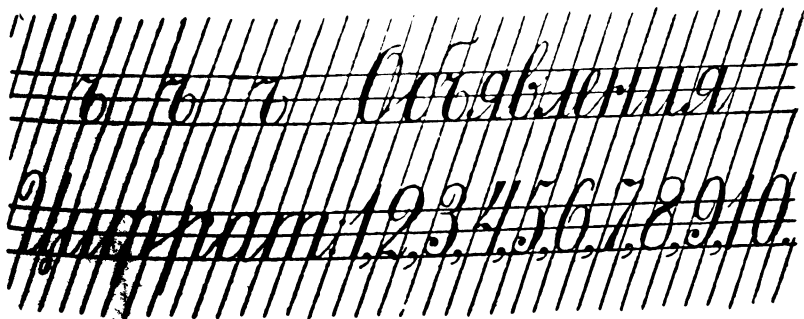 ъ ъ ъ Объявления
1, 2, 3, 4, 5, 6, 7, 8, 9, 10.